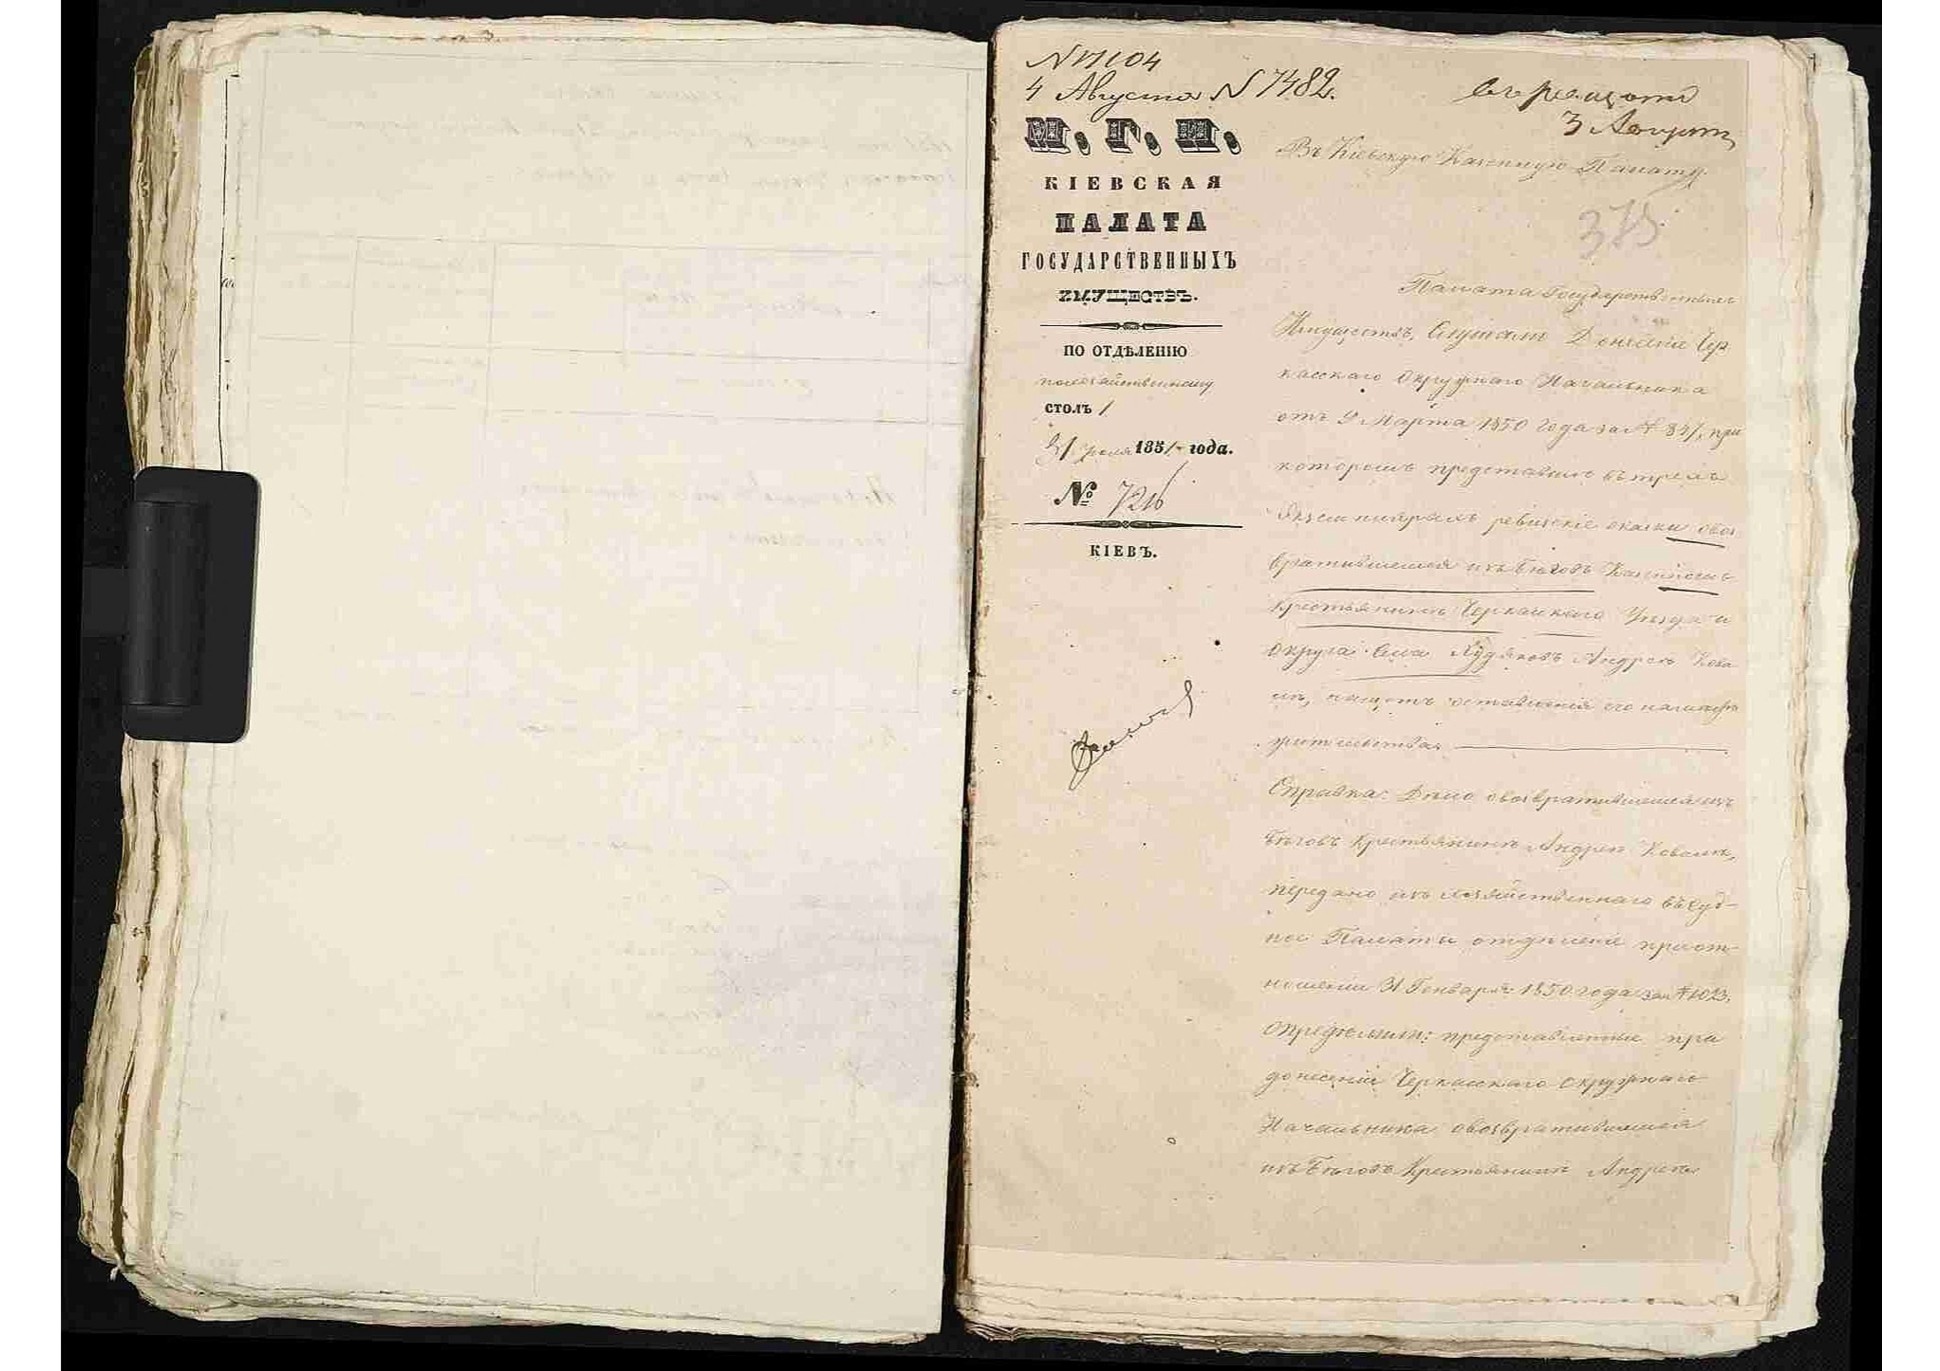 N 17104
4 Августа N 7482.
3 Августа
М. Г. И.
КІЕВСКАЯ
ПАЛАТА
ГОСУДАРСТВЕННЫХЪ
ИМУЩЕСТВЪ.
ПО ОТДѢЛЕНІЮ
хозяйственному
столъ 1
31 Іюля 1851 года.
№ 7216
КІЕВЪ.
Въ Кіевскую Казенную Палату.
375
Палата Государственныхъ
Имуществъ, Слушали Донесеніе Чер
касскаго Окружнаго Начальника
отъ 9 Марта 1850 года за № 847, при
которомъ представилъ въ трехъ
Экземплярахъ ревизскіе сказки овоз
вратившемся изъ Бѣговъ Казенномъ
крестьянинѣ Черкасскаго Уѣзда и
округа Села Худяковъ Андреѣ Кова
лѣ, оставленія его на
жительства
Справка: Дѣло овозвратившемся изъ
Бѣговъ крестьянинѣ Андреѣ Ковалѣ,
передано изъ хозяйственнаго въ Суд-
ное Палаты отдѣленіе при от-
ношеніи 31 Генваря 1850 года за № 1023.
Опредѣлили: представленные при
донесеніи Черкасскаго окружнаго
Начальника овозвратившемся
изъ Бѣговъ Крестьянинѣ Андреѣ